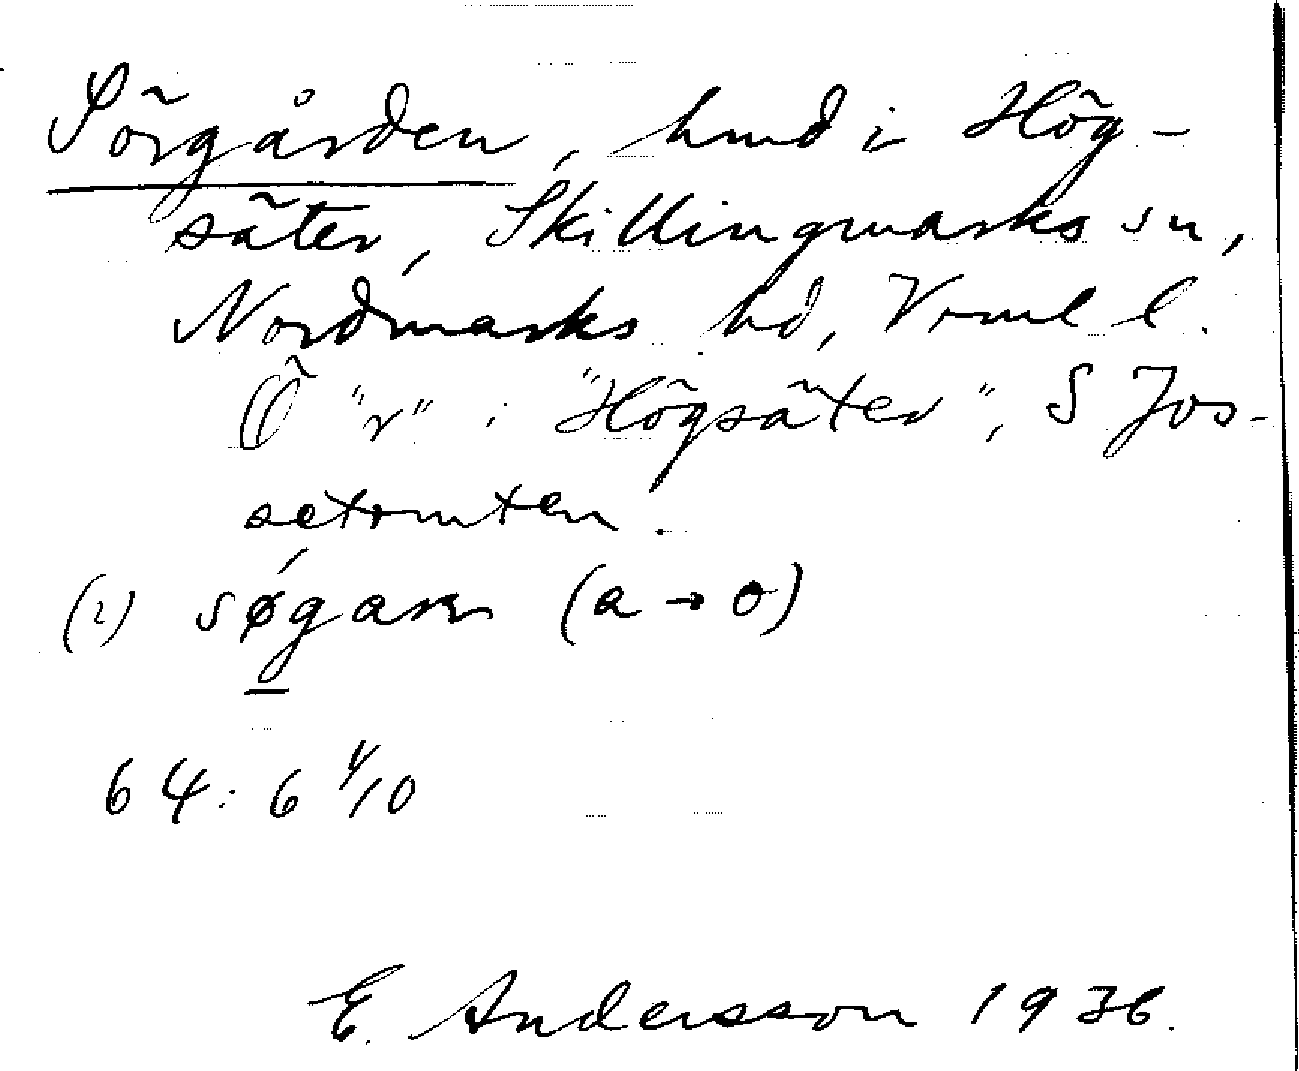 Sörgården, hmd i Hög-
säter, Skillingmarks sn,
Nordmarks hd, Vrml l.
Ö "r" i "Högsäter", S Jos-
setomten.
(1) søgaṛn (a → o)
64: 6 4/10
E. Andersson 1936.